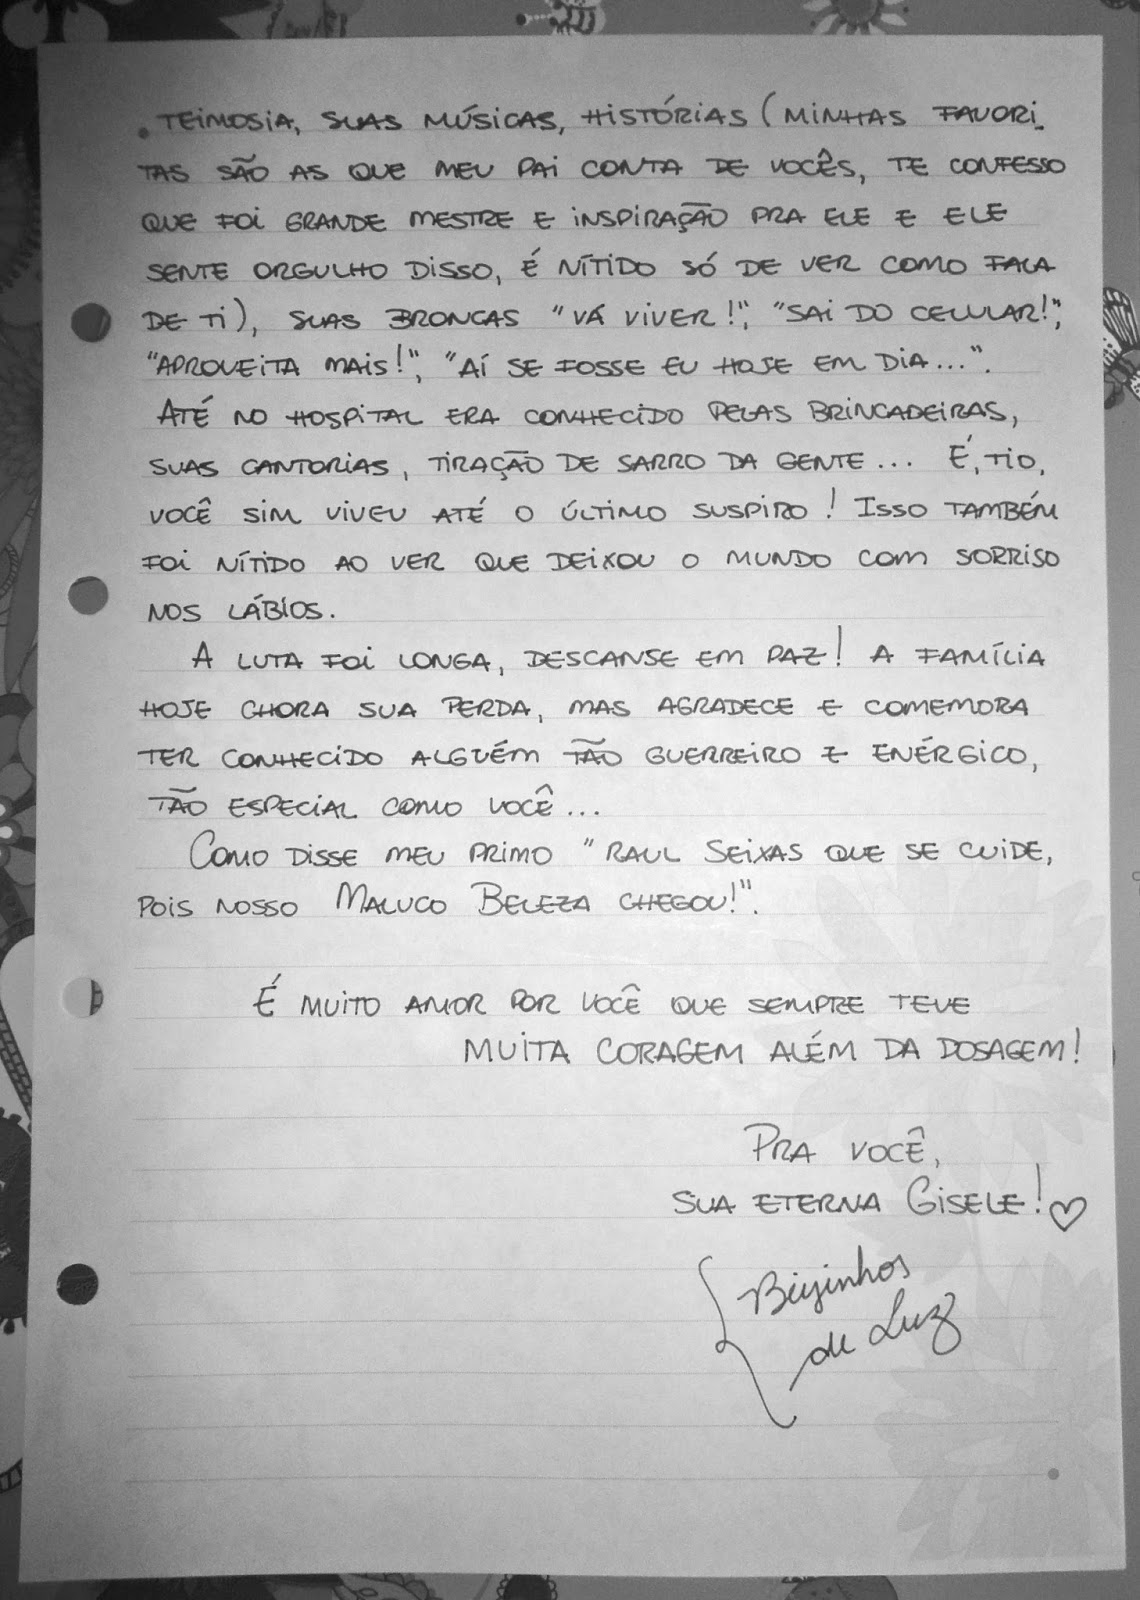 . TEIMOSIA, SUAS MÚSICAS, HISTÓRIAS (MINHAS FAVORI-
TAS SÃO AS QUE MEU PAI CONTA DE VOCÊS, TE CONFESSO
QUE FOI GRANDE MESTRE E INSPIRAÇÃO PRA ELE E ELE
SENTE ORGULHO DISSO, É NÍTIDO SÓ DE VER COMO FALA
DE TI), SUAS BRONCAS "VÁ VIVER!", "SAI DO CELULAR!",
"APROVEITA MAIS!", "AÍ SE FOSSE EU HOJE EM DIA...".
ATÉ NO HOSPITAL ERA CONHECIDO PELAS BRINCADEIRAS,
SUAS CANTORIAS, TIRAÇÃO DE SARRO DA GENTE... É, TIO,
VOCÊ SIM VIVEU ATÉ O ÚLTIMO SUSPIRO! ISSO TAMBÉM
FOI NÍTIDO AO VER QUE DEIXOU O MUNDO COM SORRISO
NOS LÁBIOS.
A LUTA FOI LONGA, DESCANSE EM PAZ! A FAMÍLIA
HOJE CHORA SUA PERDA, MAS AGRADECE E COMEMORA
TER CONHECIDO ALGUÉM TÃO GUERREIRO E ENÉRGICO,
TÃO ESPECIAL COMO VOCÊ...
COMO DISSE MEU PRIMO "RAUL SEIXAS QUE SE CUIDE,
POIS NOSSO MALUCO BELEZA CHEGOU!".
É MUITO AMOR POR VOCÊ QUE SEMPRE TEVE
MUITA CORAGEM ALÉM DA DOSAGEM!
PRA VOCÊ,
SUA ETERNA GISELE! ♡
Beijinhos
de Luz